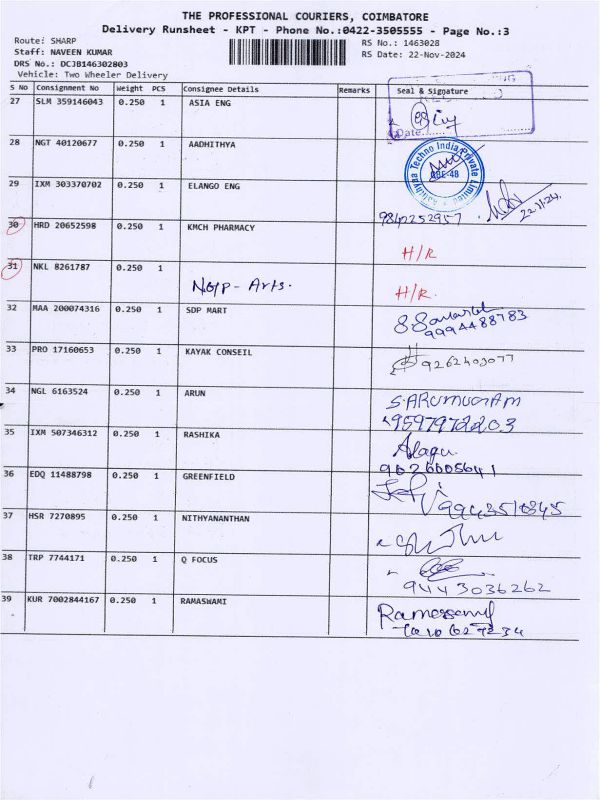 THE PROFESSIONAL COURIERS, COIMBATORE
Delivery Runsheet - KPT - Phone No.:0422-3505555 - Page No.:3
Route: SHARP
RS No.: 1463028
Staff: NAVEEN KUMAR
RS Date: 22-Nov-2024
DRS No.: DCJB146302803
Vehicle: Two Wheeler Delivery
S No Consignment No Weight PCS Consignee Details Remarks Seal & Signature
27 SLM 359146043 0.250 1 ASIA ENG
Date
28 NGT 40120677 0.250 1 AADHITHYA
Techno India Private Limited
CBE-48
29 IXM 303370702 0.250 1 ELANGO ENG
9842252957 22.11.24.
30 HRD 20652598 0.250 1 KMCH PHARMACY
H/R
31 NKL 8261787 0.250 1
NGP- Arts. H/R.
32 MAA 200074316 0.250 1 SDP MART
9994488783
33 PRO 17160653 0.250 1 KAYAK CONSEIL
9262403077
34 NGL 6163524 0.250 1 ARUN
S.ARUMUGAM
9597972203
35 IXM 507346312 0.250 1 RASHIKA
Alagu
36 EDQ 11488798 0.250 1 GREENFIELD
37 HSR 7270895 0.250 1 NITHYANANTHAN
38 TRP 7744171 0.250 1 Q FOCUS
9443036262
39 KUR 7002844167 0.250 1 RAMASWAMI